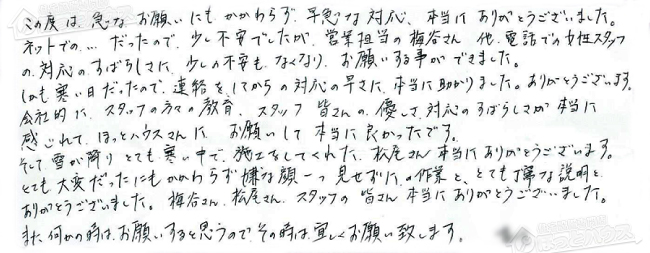 この度は、急なお願いにもかかわらず、早急な対応、本当にありがとうございました。
ネットでの…だったので、少し不安でしたが、営業担当の梅谷さん、他、電話での女性スタッフ
の対応のすばらしさに、少しの不安も、なくなり、お願いする事ができました。
しかも寒い日だったので、連絡をしてからの対応の早さに、本当に助かりました。ありがとうございます。
会社的に、スタッフの方々の教育、スタッフ皆さんの、優しさ、対応のすばらしさが本当に
感じれて、ほっとハウスさんに、お願いして本当に良かったです。
そして雪が降りとても寒い中で、施工をしてくれた、松尾さん本当にありがとうございます。
とても大変だったにもかかわらず嫌な顔一つ見せずに、の作業と、とても丁寧な説明と、
ありがとうございました。梅谷さん、松尾さん、スタッフの皆さん本当にありがとうございました。
また、何かの時は、お願いすると思うので、その時は、宜しくお願い致します。